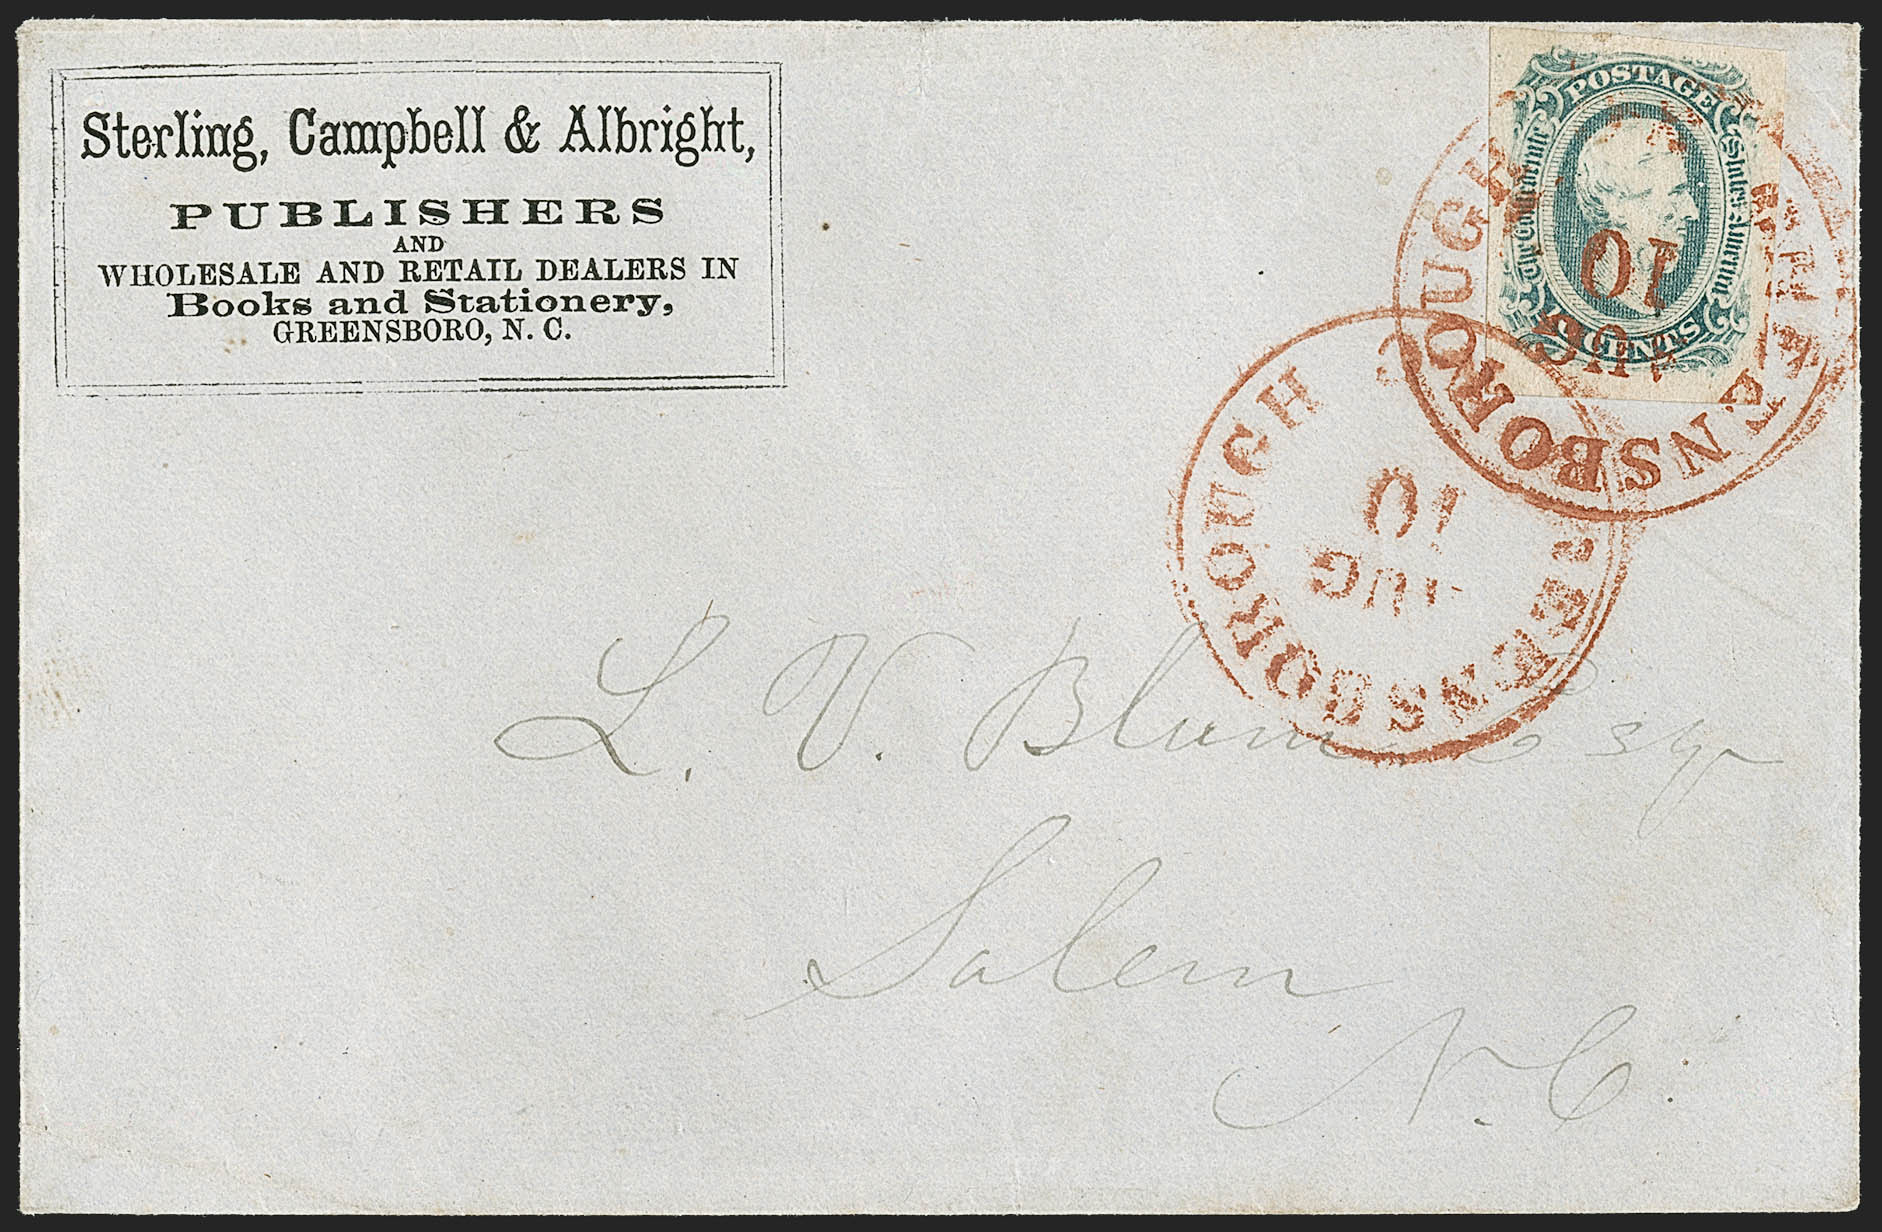 Sterling, Campbell & Albright,
PUBLISHERS
AND
WHOLESALE AND RETAIL DEALERS IN
Books and Stationery,
GREENSBORO, N. C.
POSTAGE
The Confederate
States America
CENTS
ENSBOROUGH
10
AUG
EENSBOROUGH
10
AUG
L. V. Blum Esqr
Salem
N. C.